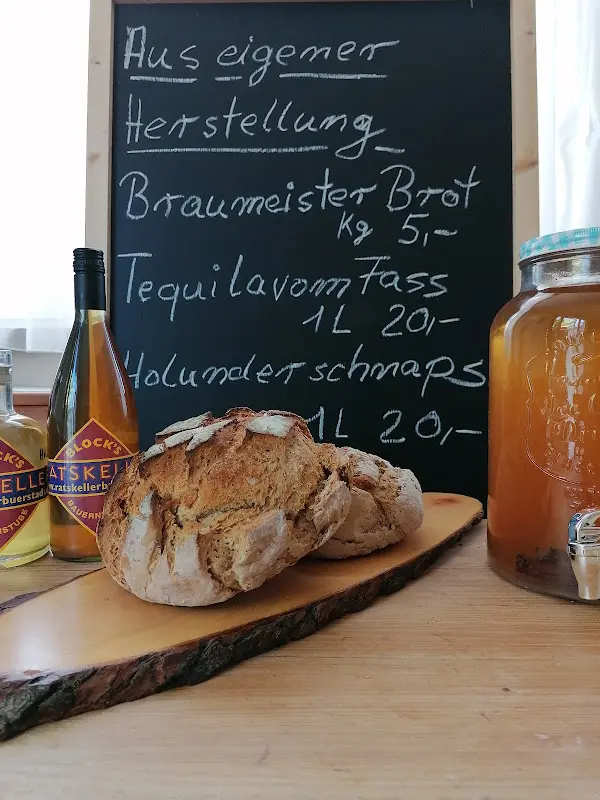 Aus eigener
Herstellung
Braumeister Brot
Kg 5,-
Tequila vom Fass
1L 20,-
Holunderschnaps
1L 20,-
BLOCK'S
RATSKELL
w.ratskellerb
BAUERN
CK'S
KELLE
rbuerstad
STUBE